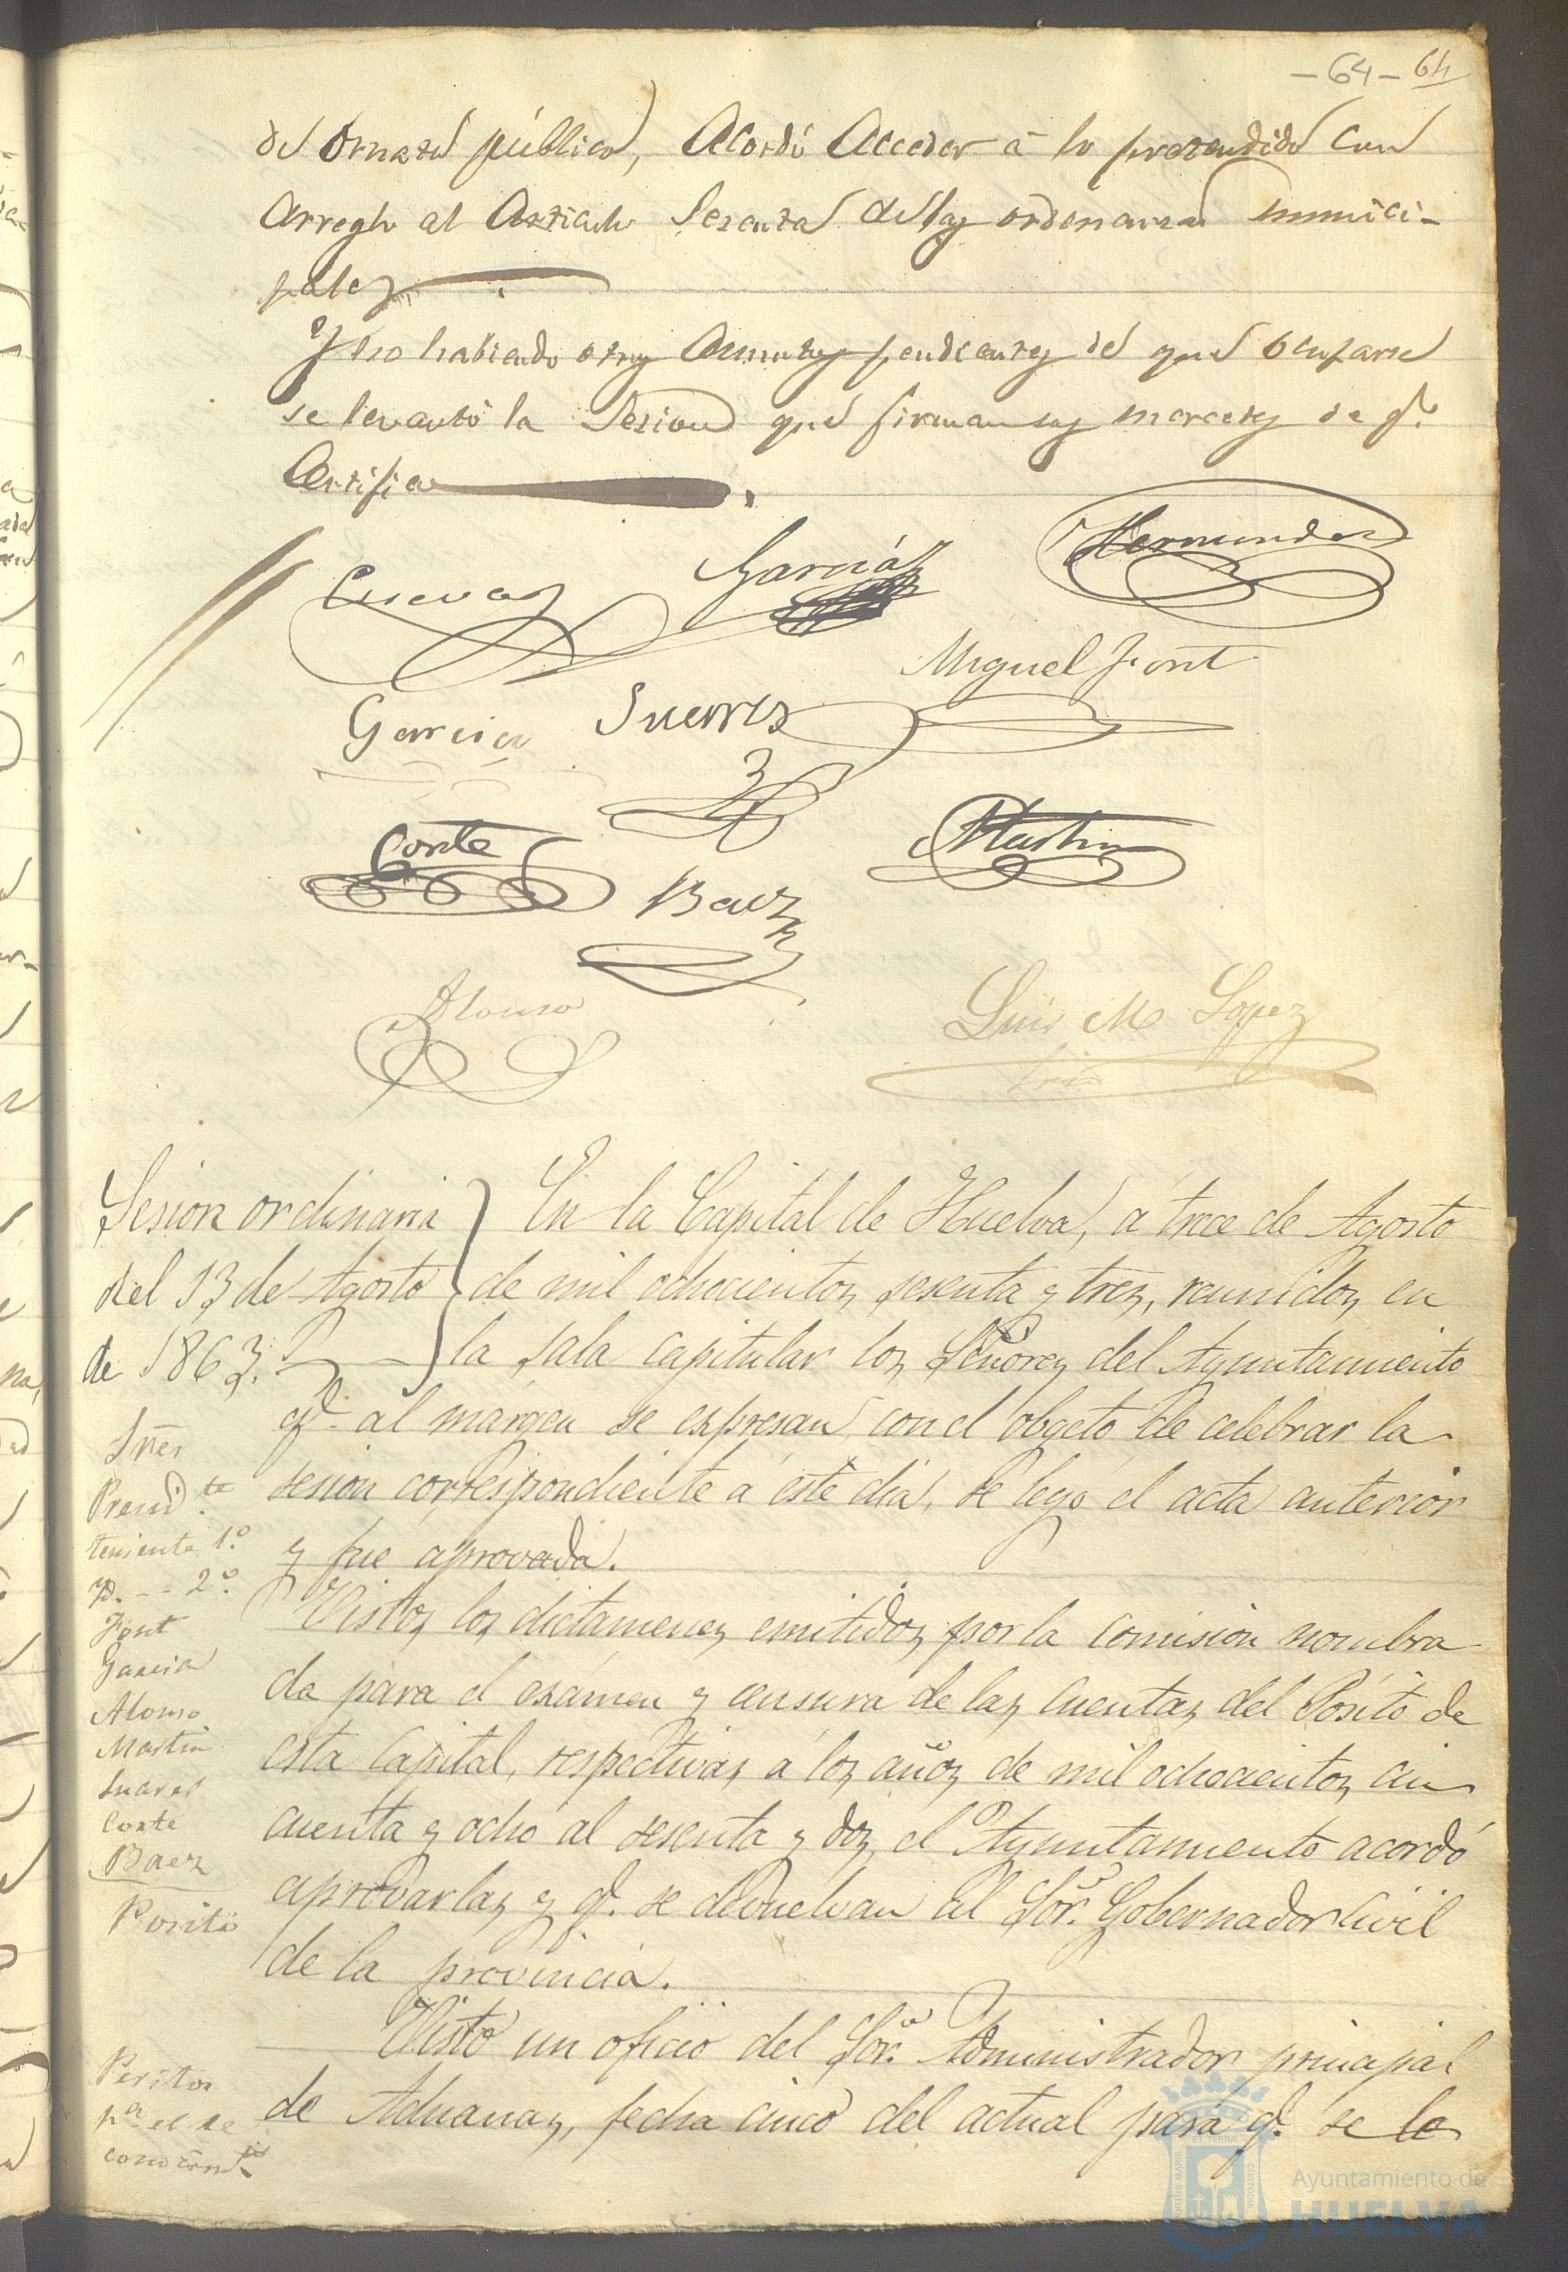 - 64 - 64
de Ornato público, Acordó Acceder á lo pretendido con
Arreglo al Articulo Sesenta de las ordenanzas munici-
pales
Y no habiendo otros Asuntos pendientes de que ocuparse
se levantó la Sesion que firman sus mercedes de q.
Certifico
Cuevas
García
Hernandez
Miguel Font
Garcia
Suares
Conte
Martin
Baez
Alonso
Luis M Lopez
Sesion ordinaria
del 13 de Agosto
de 1863.
En la Capital de Huelva, á trece de Agosto
de mil ochocientos sesenta y tres, reunidos en
la sala capitular los Señores del Ayuntamiento
q. al márgen se espresan con el obgeto de celebrar la
sesion correspondiente á este dia, se leyó el acta anterior
y fue aprovada.
Sres
Presid.te
teniente 1.º
Yd. -- 2.º
Font
Garcia
Alonso
Martin
Suares
Conte
Baez
Vistos los dictamenes emitidos por la comision nombra
da para el exámen y censura de las cuentas del Pósito de
esta Capital, respectivas á los años de mil ochocientos cin
cuenta y ocho al sesenta y dos, el Ayuntamiento acordó
aprovarlas y q. se devuelvan al Sor. Gobernador Civil
de la provincia.
Posito
Visto un oficio del Sor. Administrador principal
de Aduanas, fecha cinco del actual para q. se le
Peritos
p.a el re
Ayuntamiento de
HUELVA